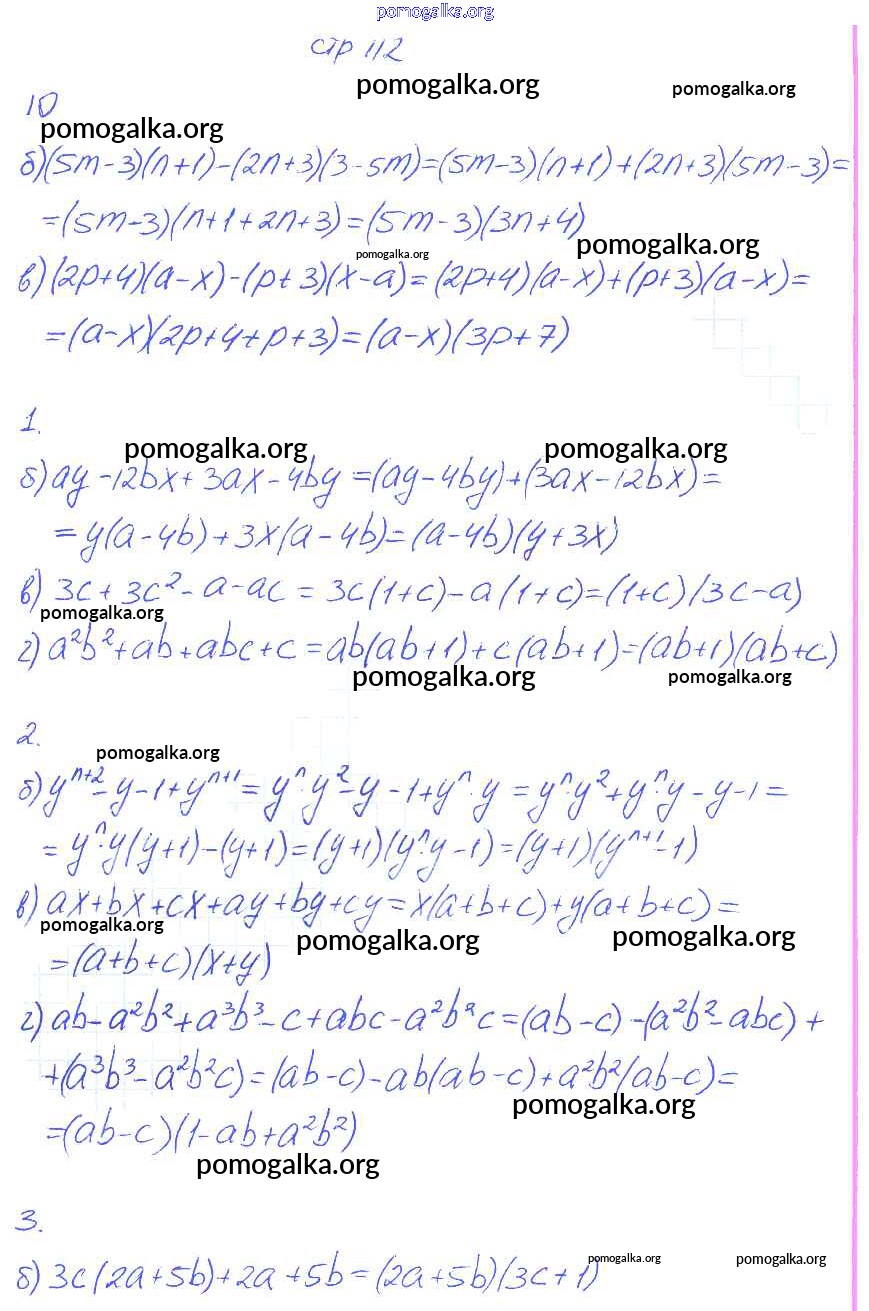 pomogalka.org
стр 112
pomogalka.org pomogalka.org
10
pomogalka.org
б)(5m-3)(n+1)-(2n+3)(3-5m)=(5m-3)(n+1)+(2n+3)(5m-3)=
=(5m-3)(n+1+2n+3)=(5m-3)(3n+4)
pomogalka.org pomogalka.org
в)(2p+4)(a-x)-(p+3)(x-a)=(2p+4)(a-x)+(p+3)(a-x)=
=(a-x)(2p+4+p+3)=(a-x)(3p+7)
1.
pomogalka.org pomogalka.org
б)ay-12bx+3ax-4by=(ay-4by)+(3ax-12bx)=
=y(a-4b)+3x(a-4b)=(a-4b)(y+3x)
в) 3c+3c²-a-ac=3c(1+c)-a(1+c)=(1+c)(3c-a)
pomogalka.org
г) a²b²+ab+abc+c=ab(ab+1)+c(ab+1)=(ab+1)(ab+c)
pomogalka.org pomogalka.org
2.
pomogalka.org
б) yⁿ⁺²-y-1+yⁿ⁺¹=yⁿ·y²-y-1+yⁿ·y=yⁿ·y²+yⁿ·y-y-1=
=yⁿ·y(y+1)-(y+1)=(y+1)(yⁿ·y-1)=(y+1)(yⁿ⁺¹-1)
в) ax+bx+cx+ay+by+cy=x(a+b+c)+y(a+b+c)=
pomogalka.org pomogalka.org pomogalka.org
=(a+b+c)(x+y)
г) ab-a²b²+a³b³-c+abc-a²b²c=(ab-c)-(a²b²-abc)+
+(a³b³-a²b²c)=(ab-c)-ab(ab-c)+a²b²(ab-c)=
pomogalka.org
=(ab-c)(1-ab+a²b²)
pomogalka.org
3.
pomogalka.org pomogalka.org
б) 3c(2a+5b)+2a+5b=(2a+5b)(3c+1)